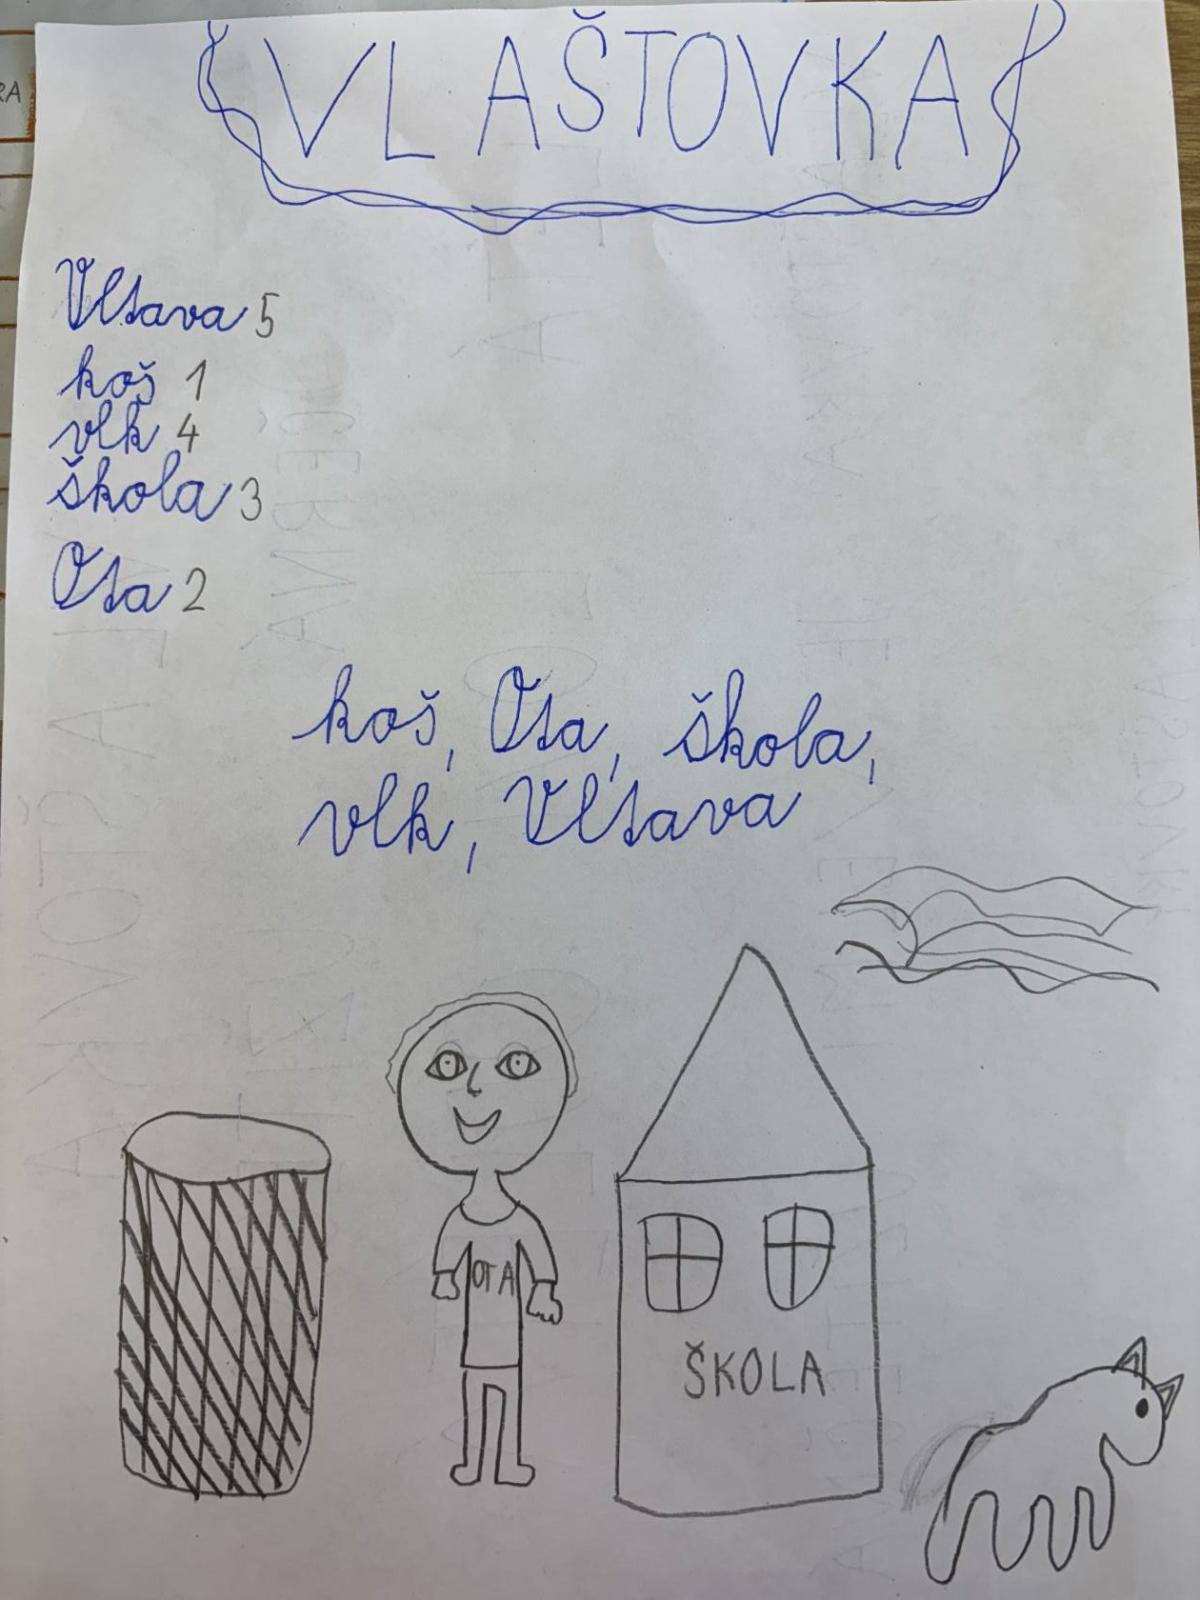 VLAŠTOVKA
Vltava 5
koš 1
vlk 4
škola 3
Ota 2
koš, Ota, škola,
vlk, Vltava
OTA
ŠKOLA
RA